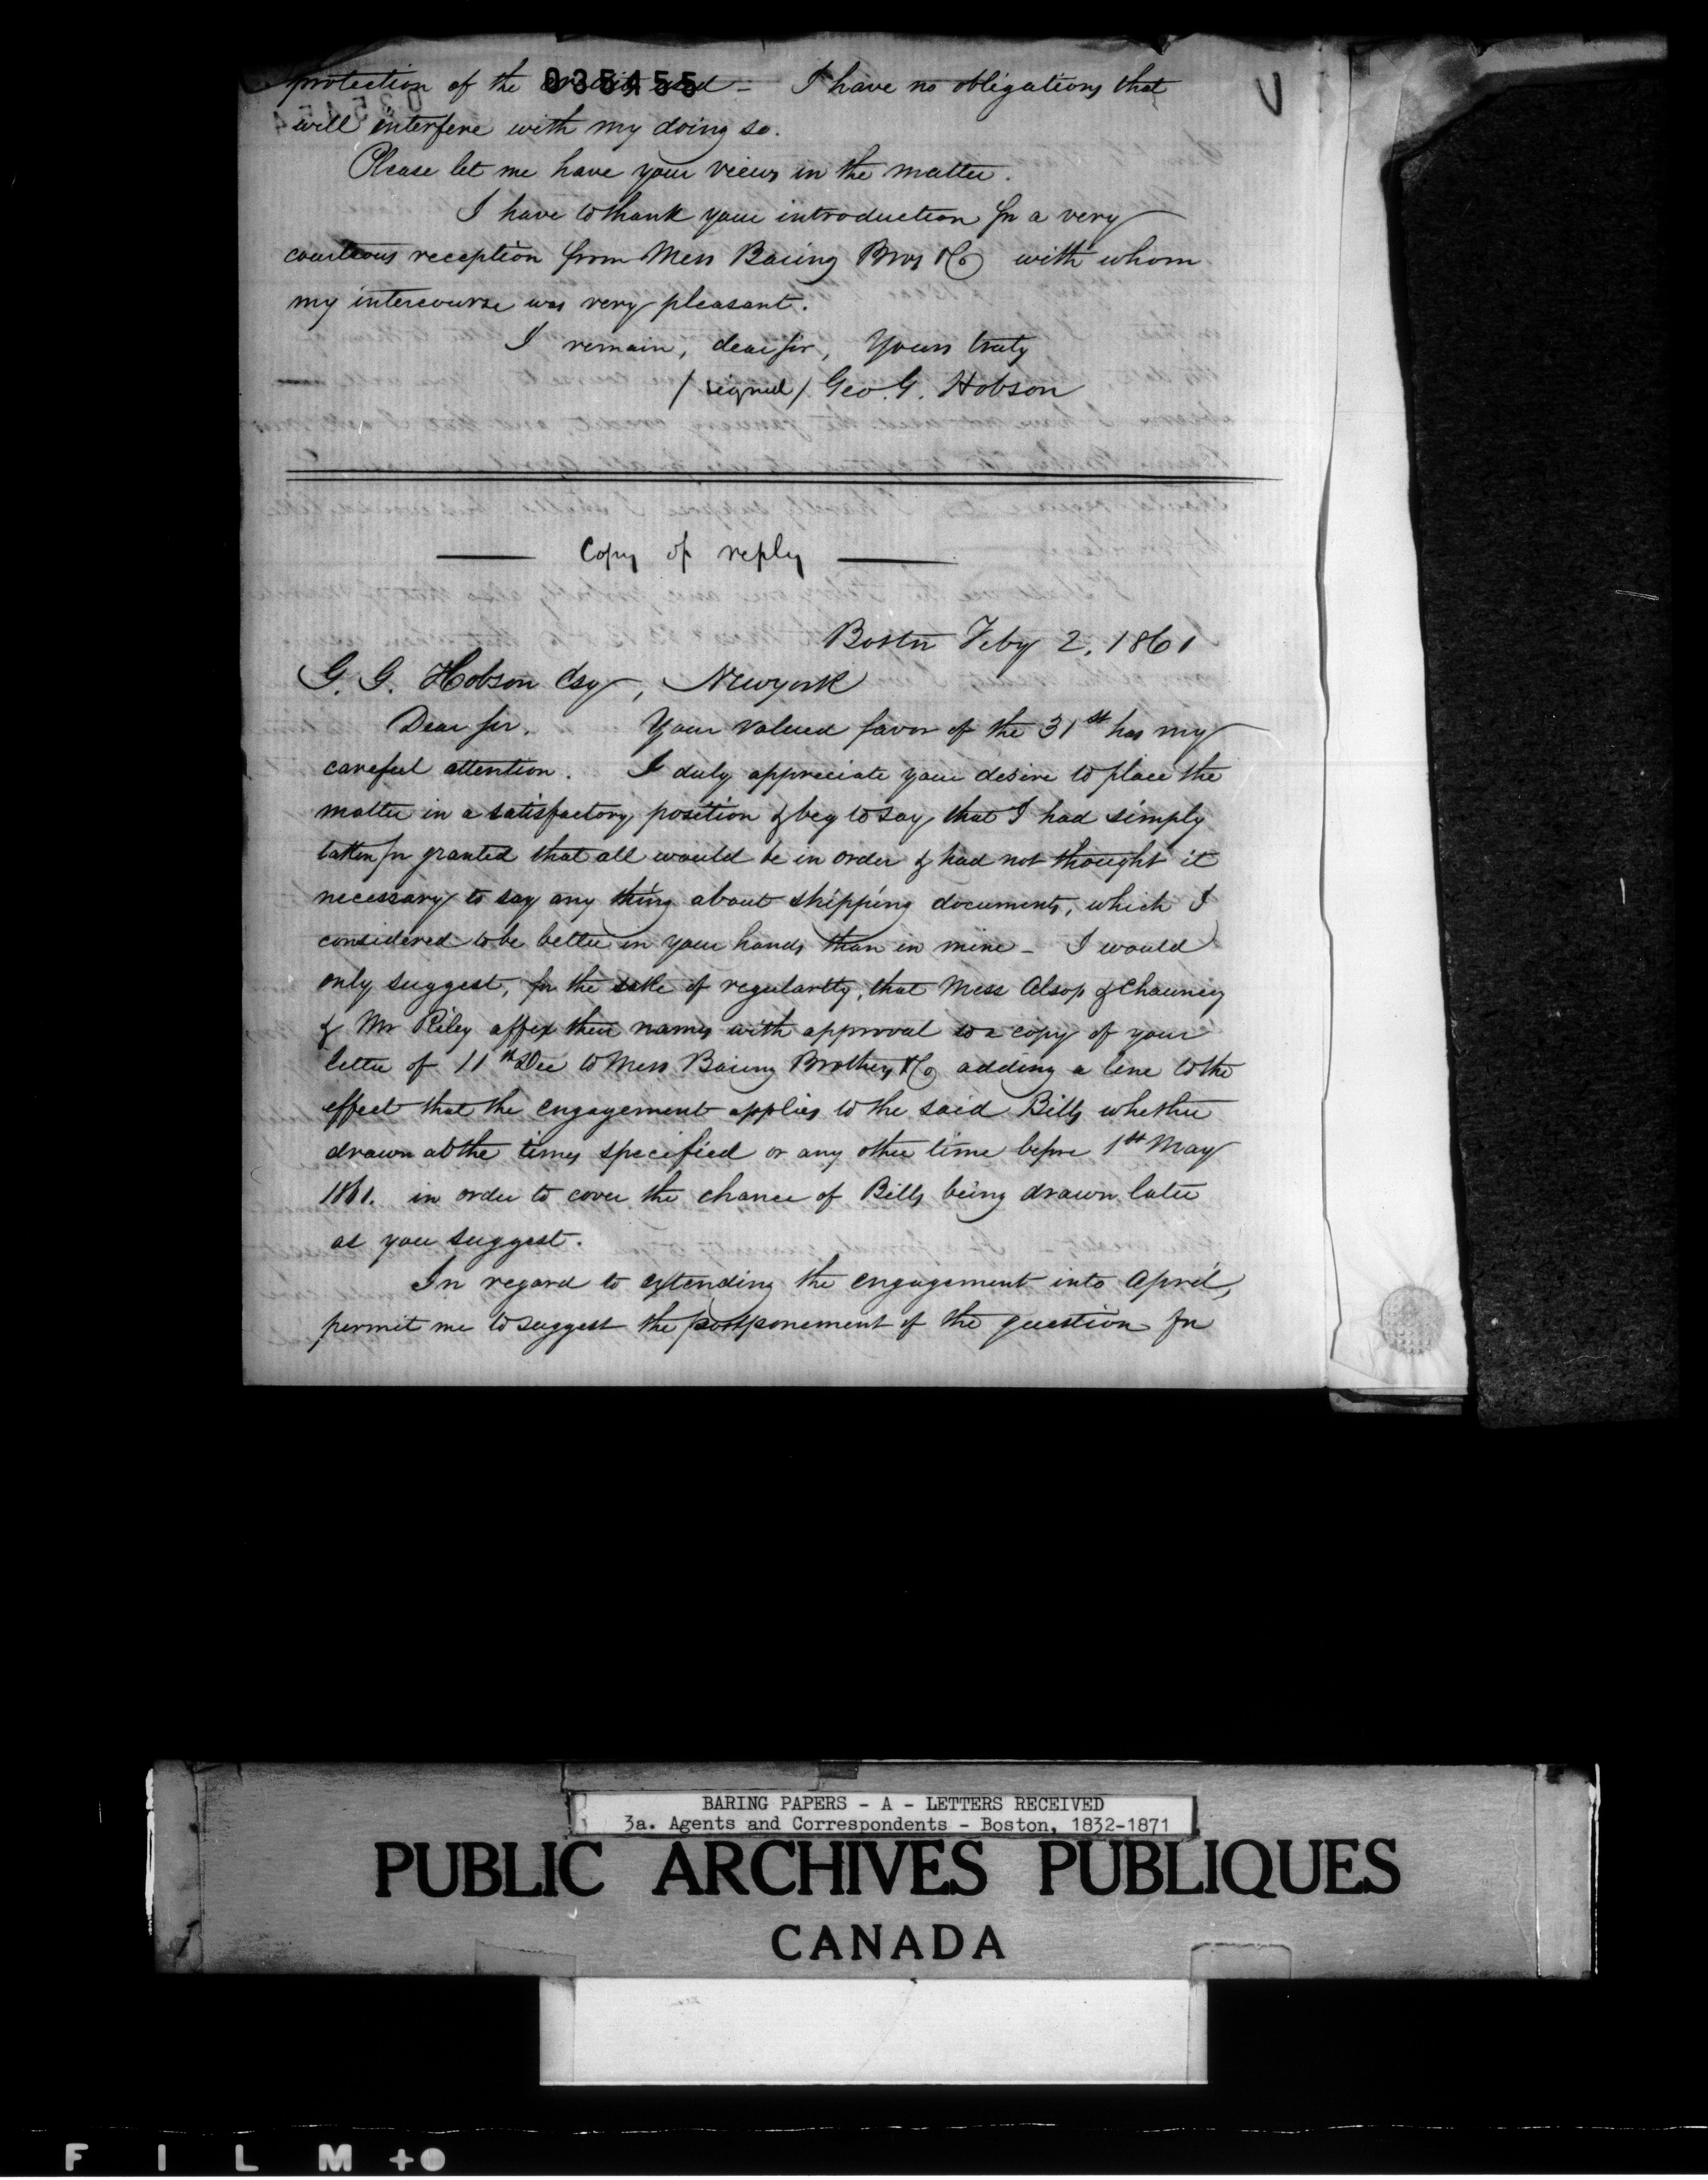 035455
protection of the credit used - I have no obligations that
will interfere with my doing so.
Please let me have your views in the matter.
I have to thank your introduction for a very
courteous reception from Mess Baring Bros & Co with whom
my intercourse was very pleasant.
I remain, dear sir, Yours truly
/signed/ Geo. G. Hobson
Copy of reply
Boston Feby 2. 1861
G. G. Hobson Esq, New york
Dear sir. Your valued favor of the 31st has my
careful attention. I duly appreciate your desire to place the
matter in a satisfactory position & beg to say that I had simply
taken for granted that all would be in order & had not thought it
necessary to say any thing about shipping documents, which I
considered to be better in your hands than in mine - I would
only suggest, for the sake of regularity, that Mess Alsop & Chauncey
& Mr Riley affix their names with approval to a copy of your
letter of 11th Dec to Mess Baring Brothers & Co adding a line to the
effect that the engagement applies to the said Bills whether
drawn at the times specified or any other time before 1st May
1861. in order to cover the chance of Bills being drawn later
as you suggest.
In regard to extending the engagement into April,
permit me to suggest the postponement of the question for
BARING PAPERS - A - LETTERS RECEIVED
3a. Agents and Correspondents - Boston, 1832-1871
PUBLIC ARCHIVES PUBLIQUES
CANADA
FILM